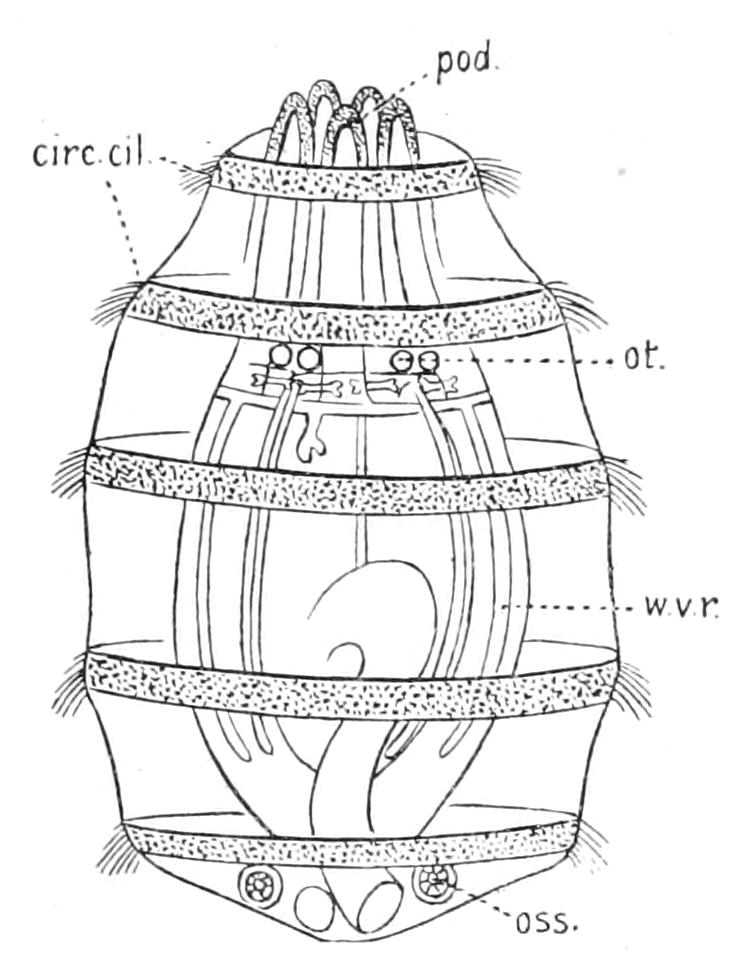 pod.
circ. cil.
ot.
w.v.r.
oss.